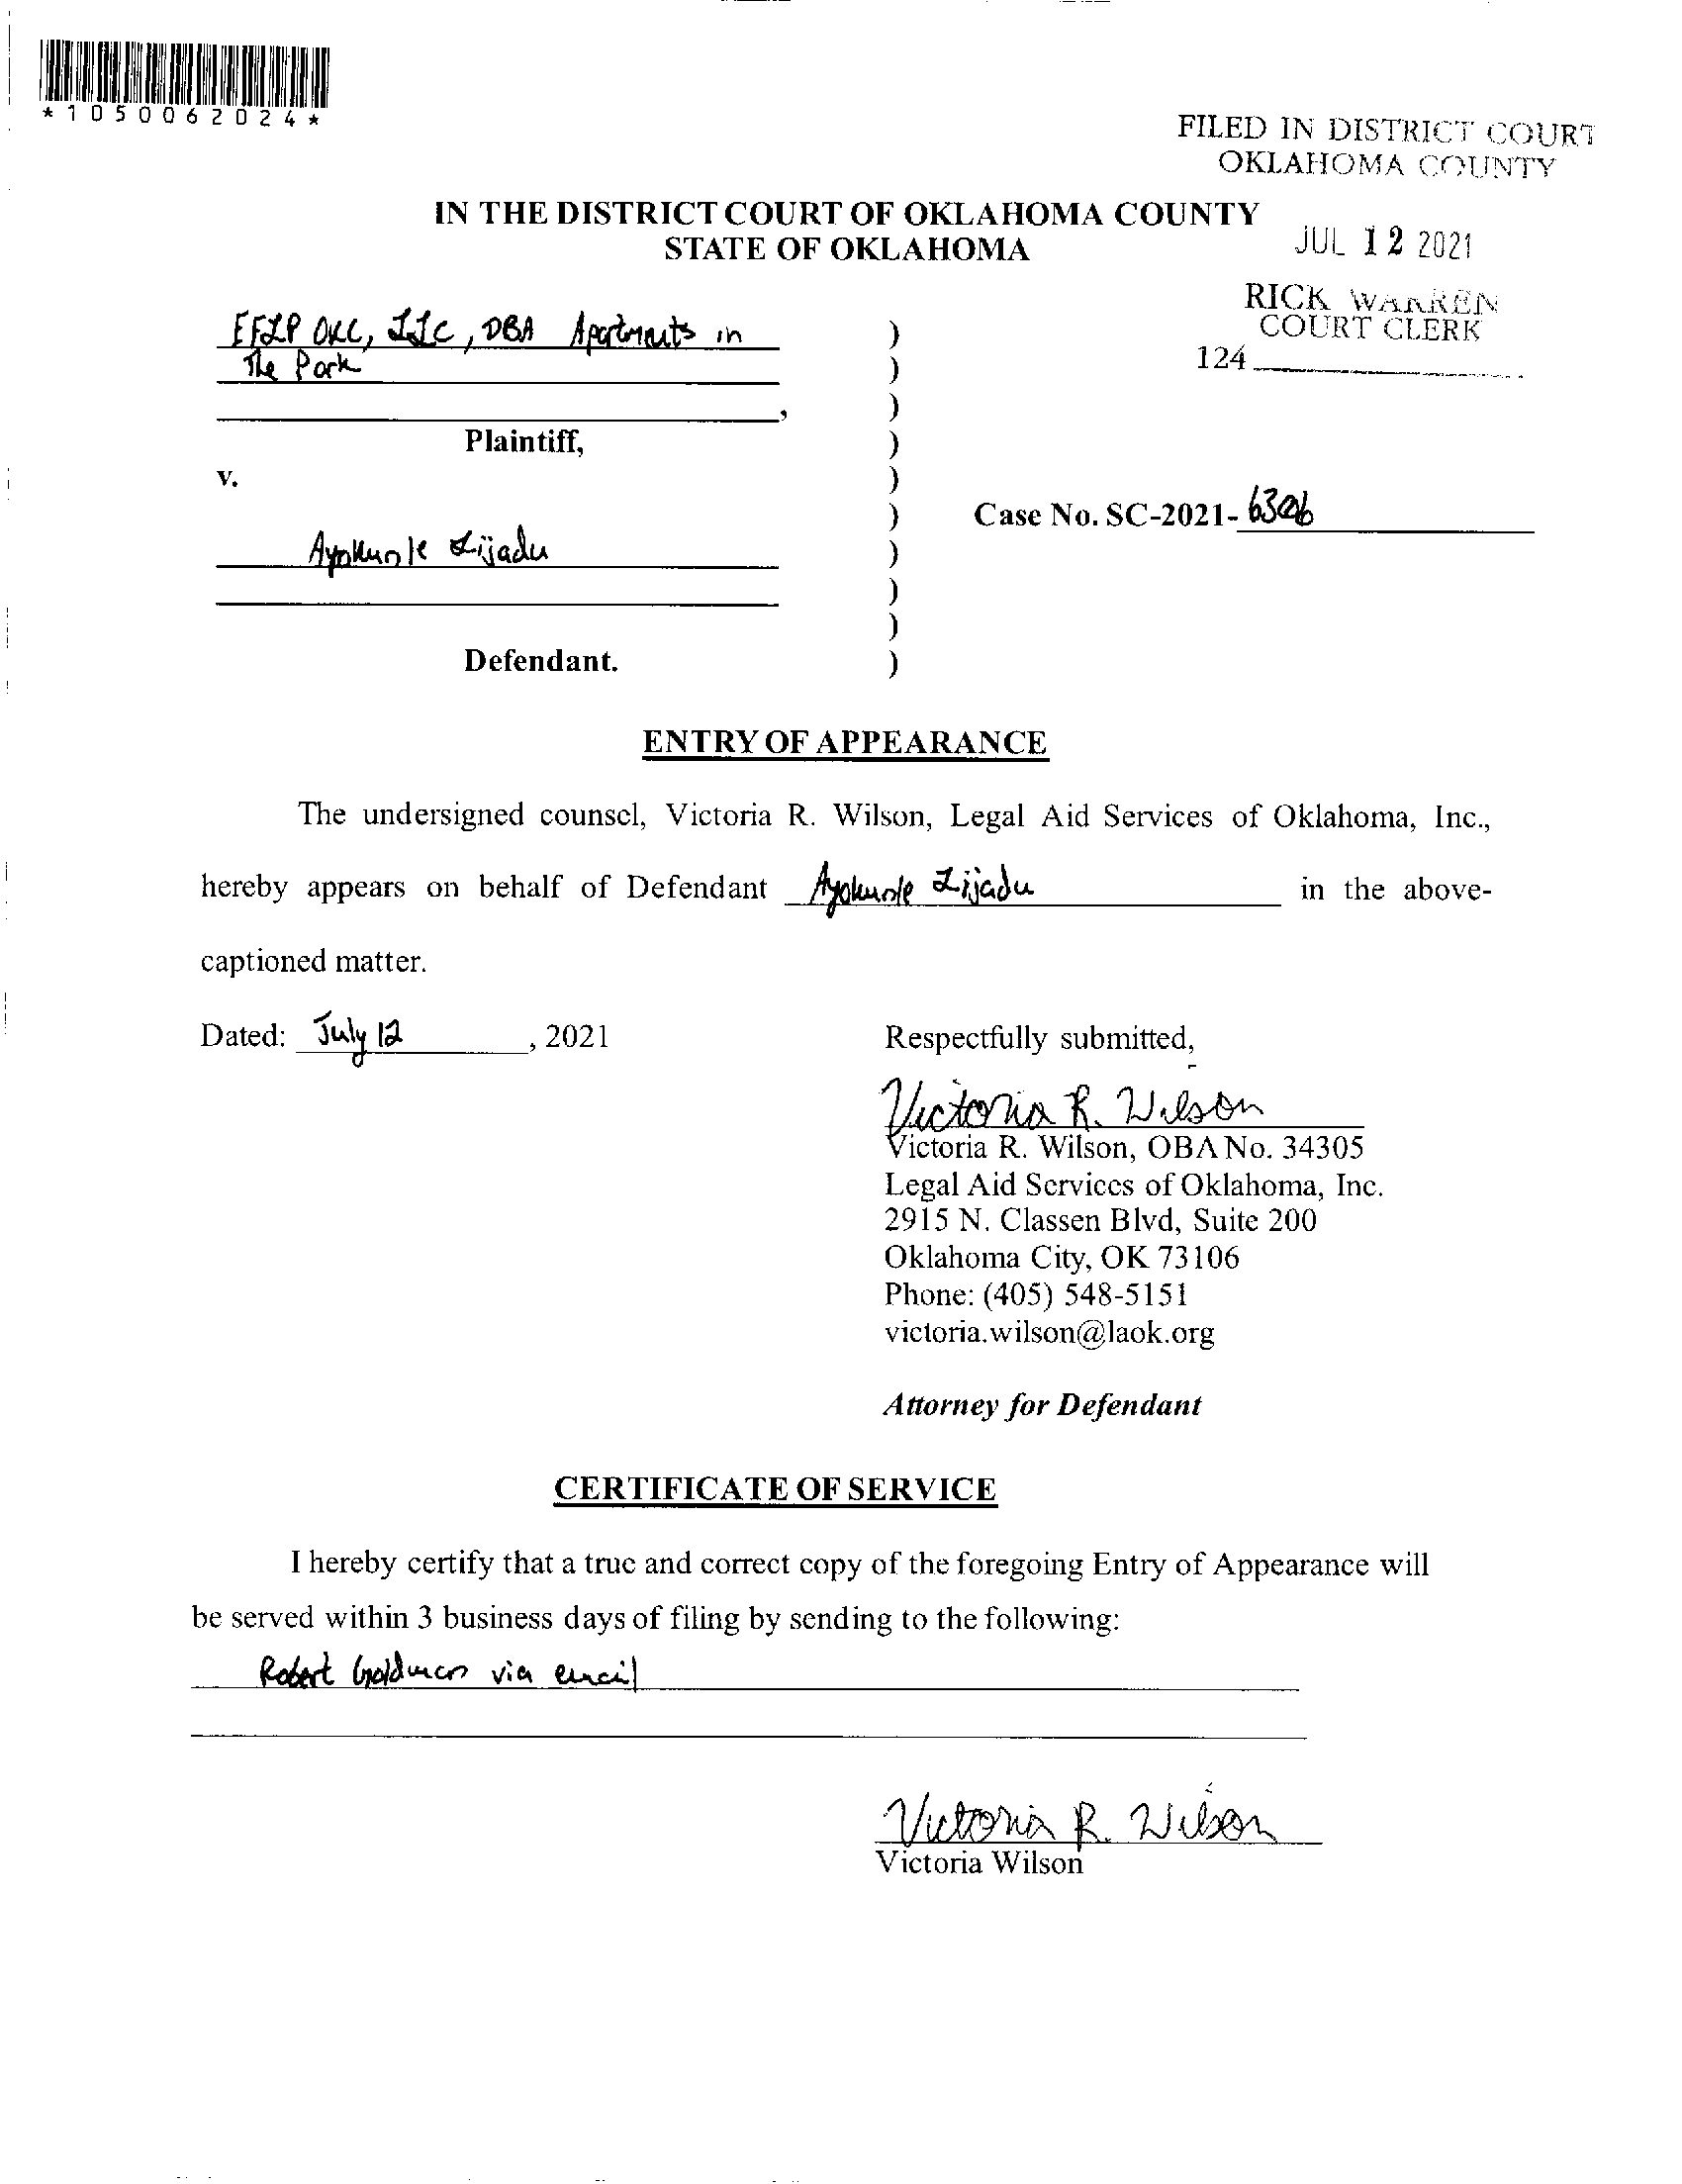 *1050062024*
FILED IN DISTRICT COURT
OKLAHOMA COUNTY
IN THE DISTRICT COURT OF OKLAHOMA COUNTY
STATE OF OKLAHOMA
JUL 12 2021
RICK WARREN
COURT CLERK
124
EFLP OKC, LLC, DBA Apartments in
The Park
,
Plaintiff,
v.
Ayokunle Lijadu
Defendant.
)
)
)
)
)
)
)
)
)
)
Case No. SC-2021-
ENTRY OF APPEARANCE
The undersigned counsel, Victoria R. Wilson, Legal Aid Services of Oklahoma, Inc.,
hereby appears on behalf of Defendant Ayokunle Lijadu in the above-
captioned matter.
Dated: July 12, 2021
Respectfully submitted,
Victoria R. Wilson
Victoria R. Wilson, OBA No. 34305
Legal Aid Services of Oklahoma, Inc.
2915 N. Classen Blvd, Suite 200
Oklahoma City, OK 73106
Phone: (405) 548-5151
victoria.wilson@laok.org
Attorney for Defendant
CERTIFICATE OF SERVICE
I hereby certify that a true and correct copy of the foregoing Entry of Appearance will
be served within 3 business days of filing by sending to the following:
Robert Goldman via email
Victoria R. Wilson
Victoria Wilson